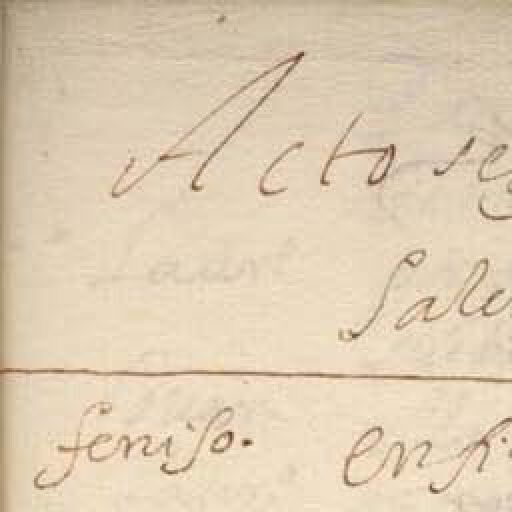 Acto se
Sale
feniso. en fi